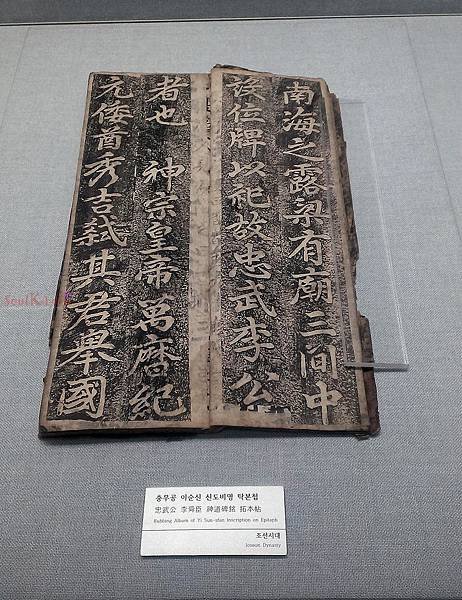 南海之露梁有廟三間中
設位牌以祀故忠武李公
者也 神宗皇帝萬曆紀
元倭酋秀吉弑其君舉國
충무공 이순신 신도비명 탁본첩
忠武公 李舜臣 神道碑銘 拓本帖
Rubbing Album of Yi Sun-shin Inscription on Epitaph
조선시대
Joseon Dynasty